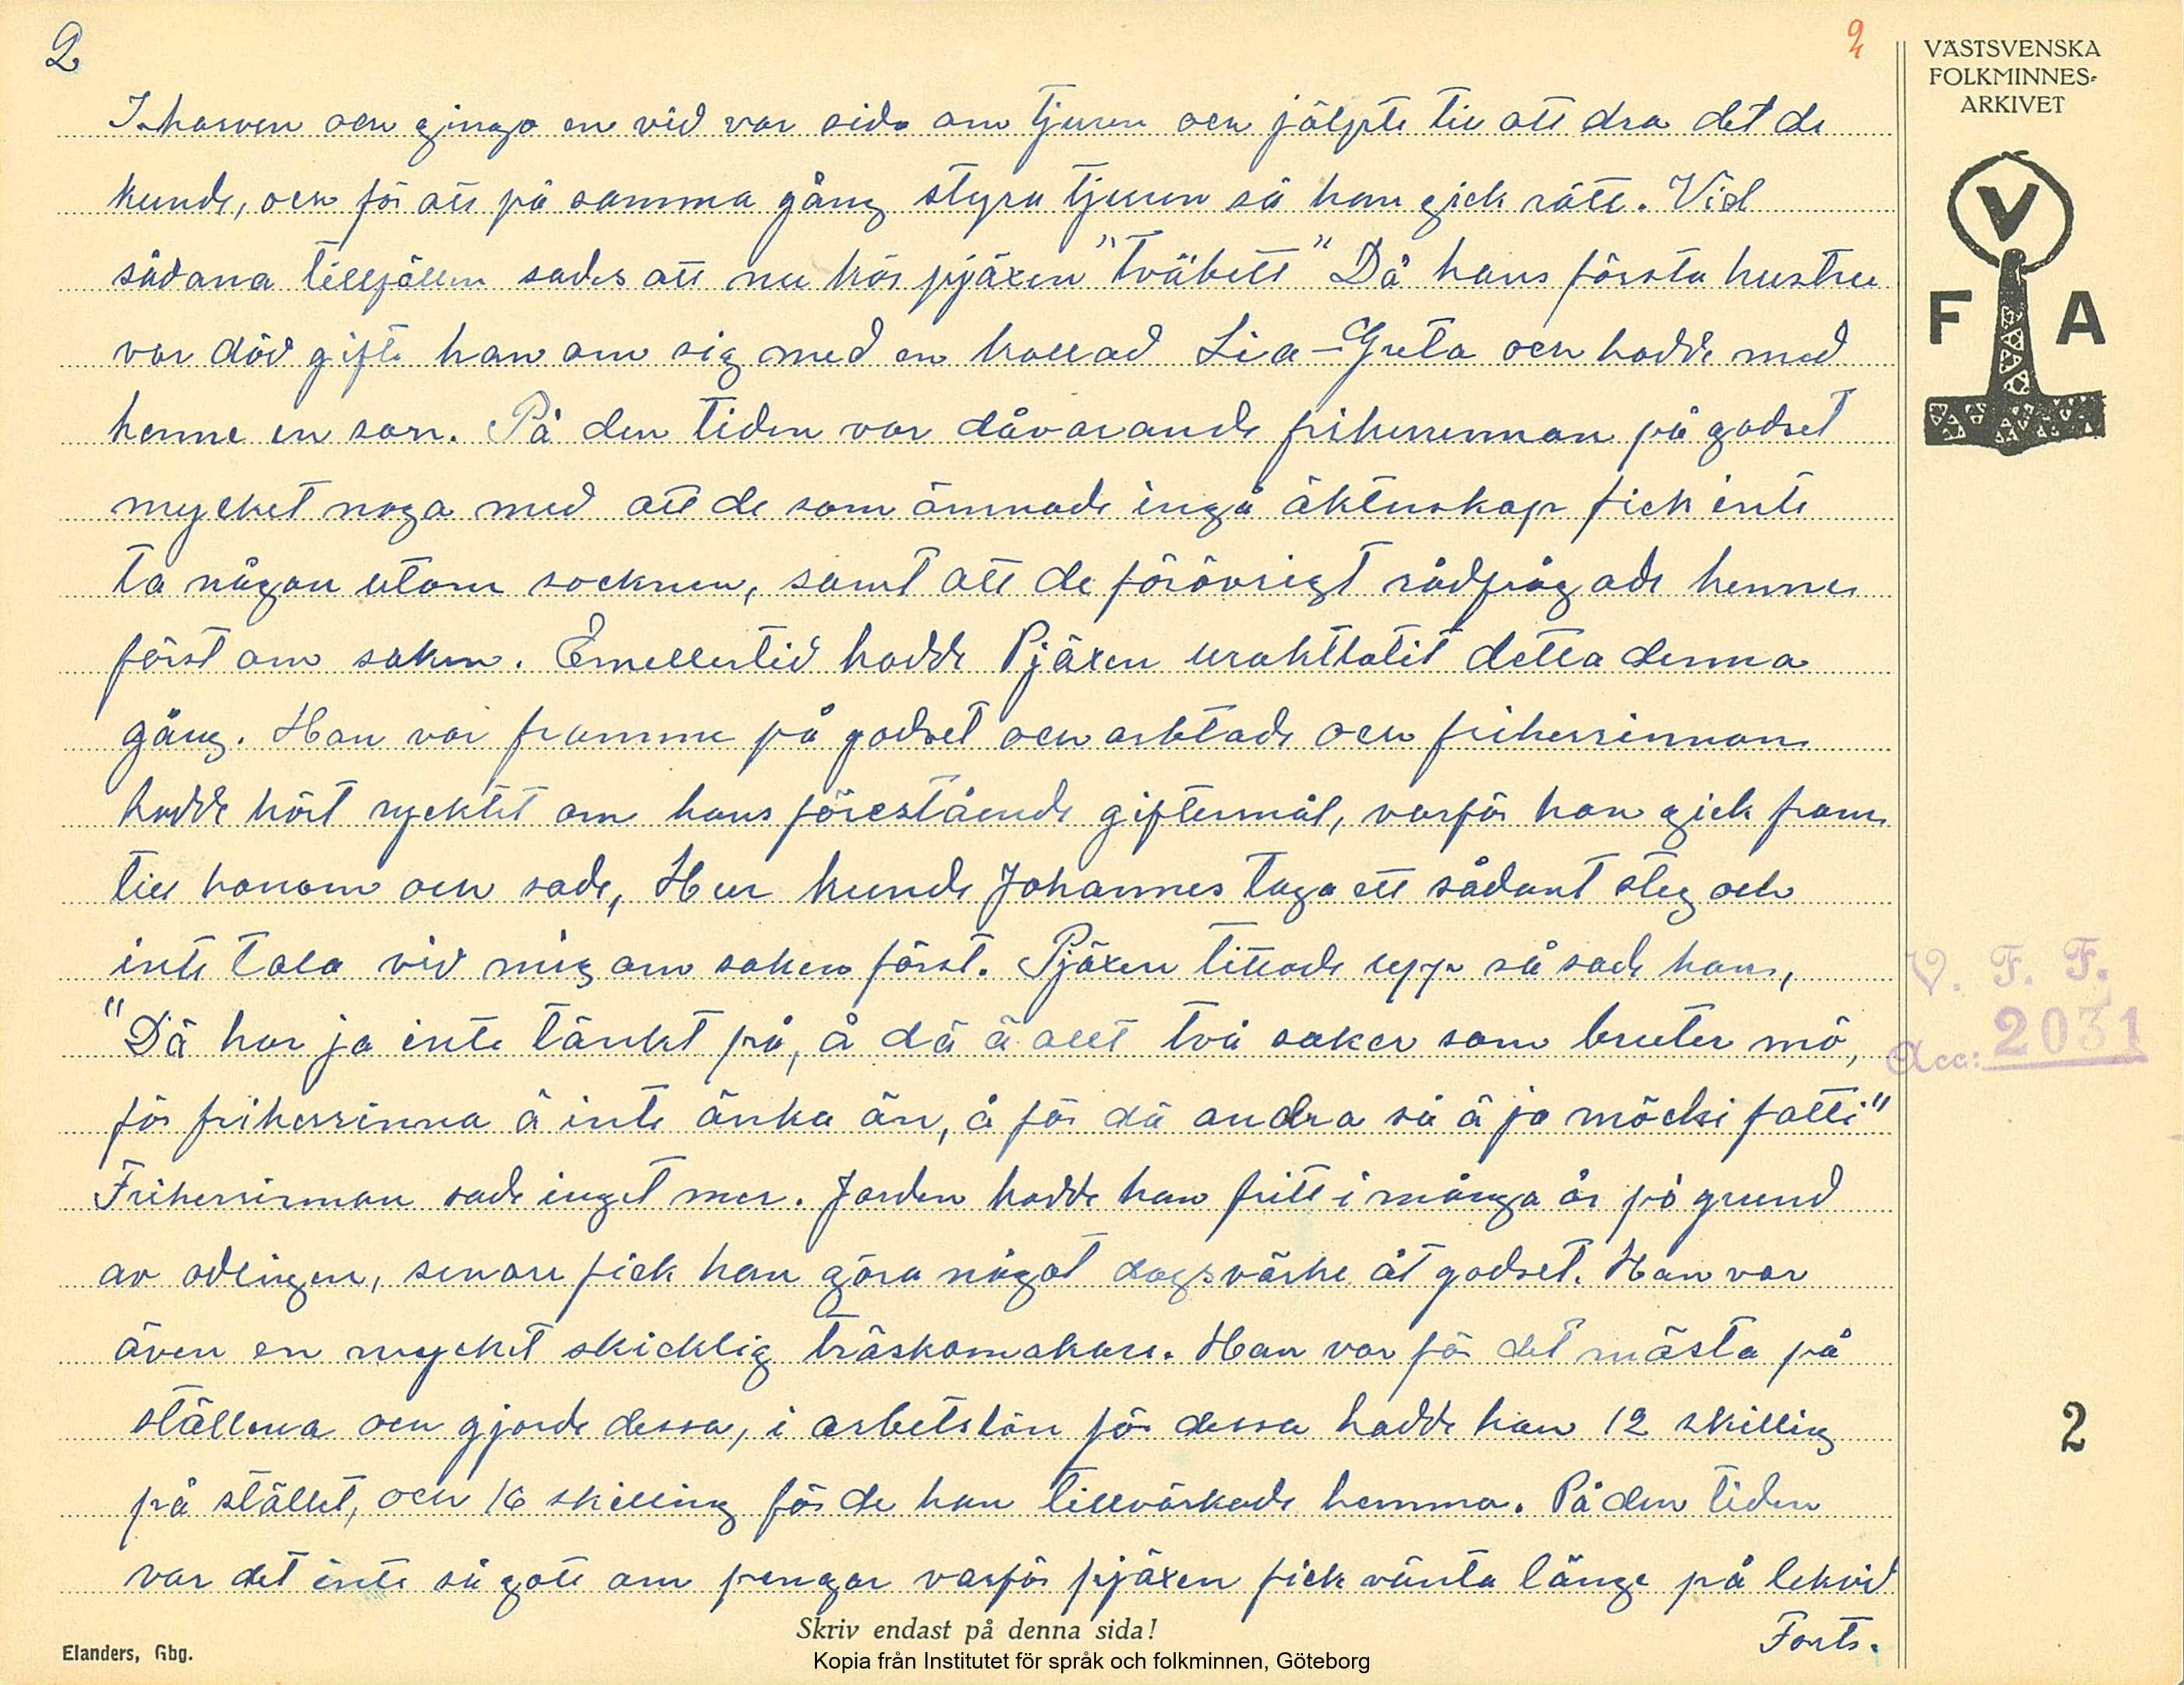 2
2
VÄSTSVENSKA
FOLKMINNES-
ARKIVET
V
F A
I harven och gingo en vid var sida om tjuren och jälpte till att dra det de
kunde, och för att på samma gång styra tjuren så han gick rätt. Vid
sådana tillfällen sades att nu kör pjäxen "tväbett" Då hans första hustru
var död gifte han om sig med en kallad Lia-Greta och hadde med
henne en son. På den tiden var dåvarande friherrinnan på godset
mycket noga med att de som ämnade ingå äktenskap fick inte
ta någon utom socknen, samt att de förövrigt rådfrågade hennes
först om saken. Emellertid hadde Pjäxen urakttatit detta denna
gång. Han var framme på godset och arbtade och friherrinnan
hadde hört ryktet om hans förestående giftermål, varför hon gick fram
till honom och sade, Hur kunde Johannes taga ett sådant steg och
inte tala vid mig om saken först. Pjäxen tittade upp så sade hans,
"Dä har ja inte tänkt på, å dä ä allt två saker som bruter mö,
för friherrinna ä inte änka än, å för dä andra så ä ja möcki fatti"
Friherrinnan sade inget mer. Jorden hadde han fritt i många år på grund
av odlingen, senare fick han göra något dagsvärke åt godset. Han var
även en mycket skicklig träskomakare. Han var för det mästa på
ställena och gjorde dessa, i arbetslön för dessa hadde han 12 skilling
på stället, och 16 skilling för de han tillvärkade hemma. På den tiden
var det inte så gott om pengar varför pjäxen fick vänta länge på lekvid
Forts.
V. F. F.
Acc: 2031
2
Skriv endast på denna sida!
Elanders, Gbg.
Kopia från Institutet för språk och folkminnen, Göteborg